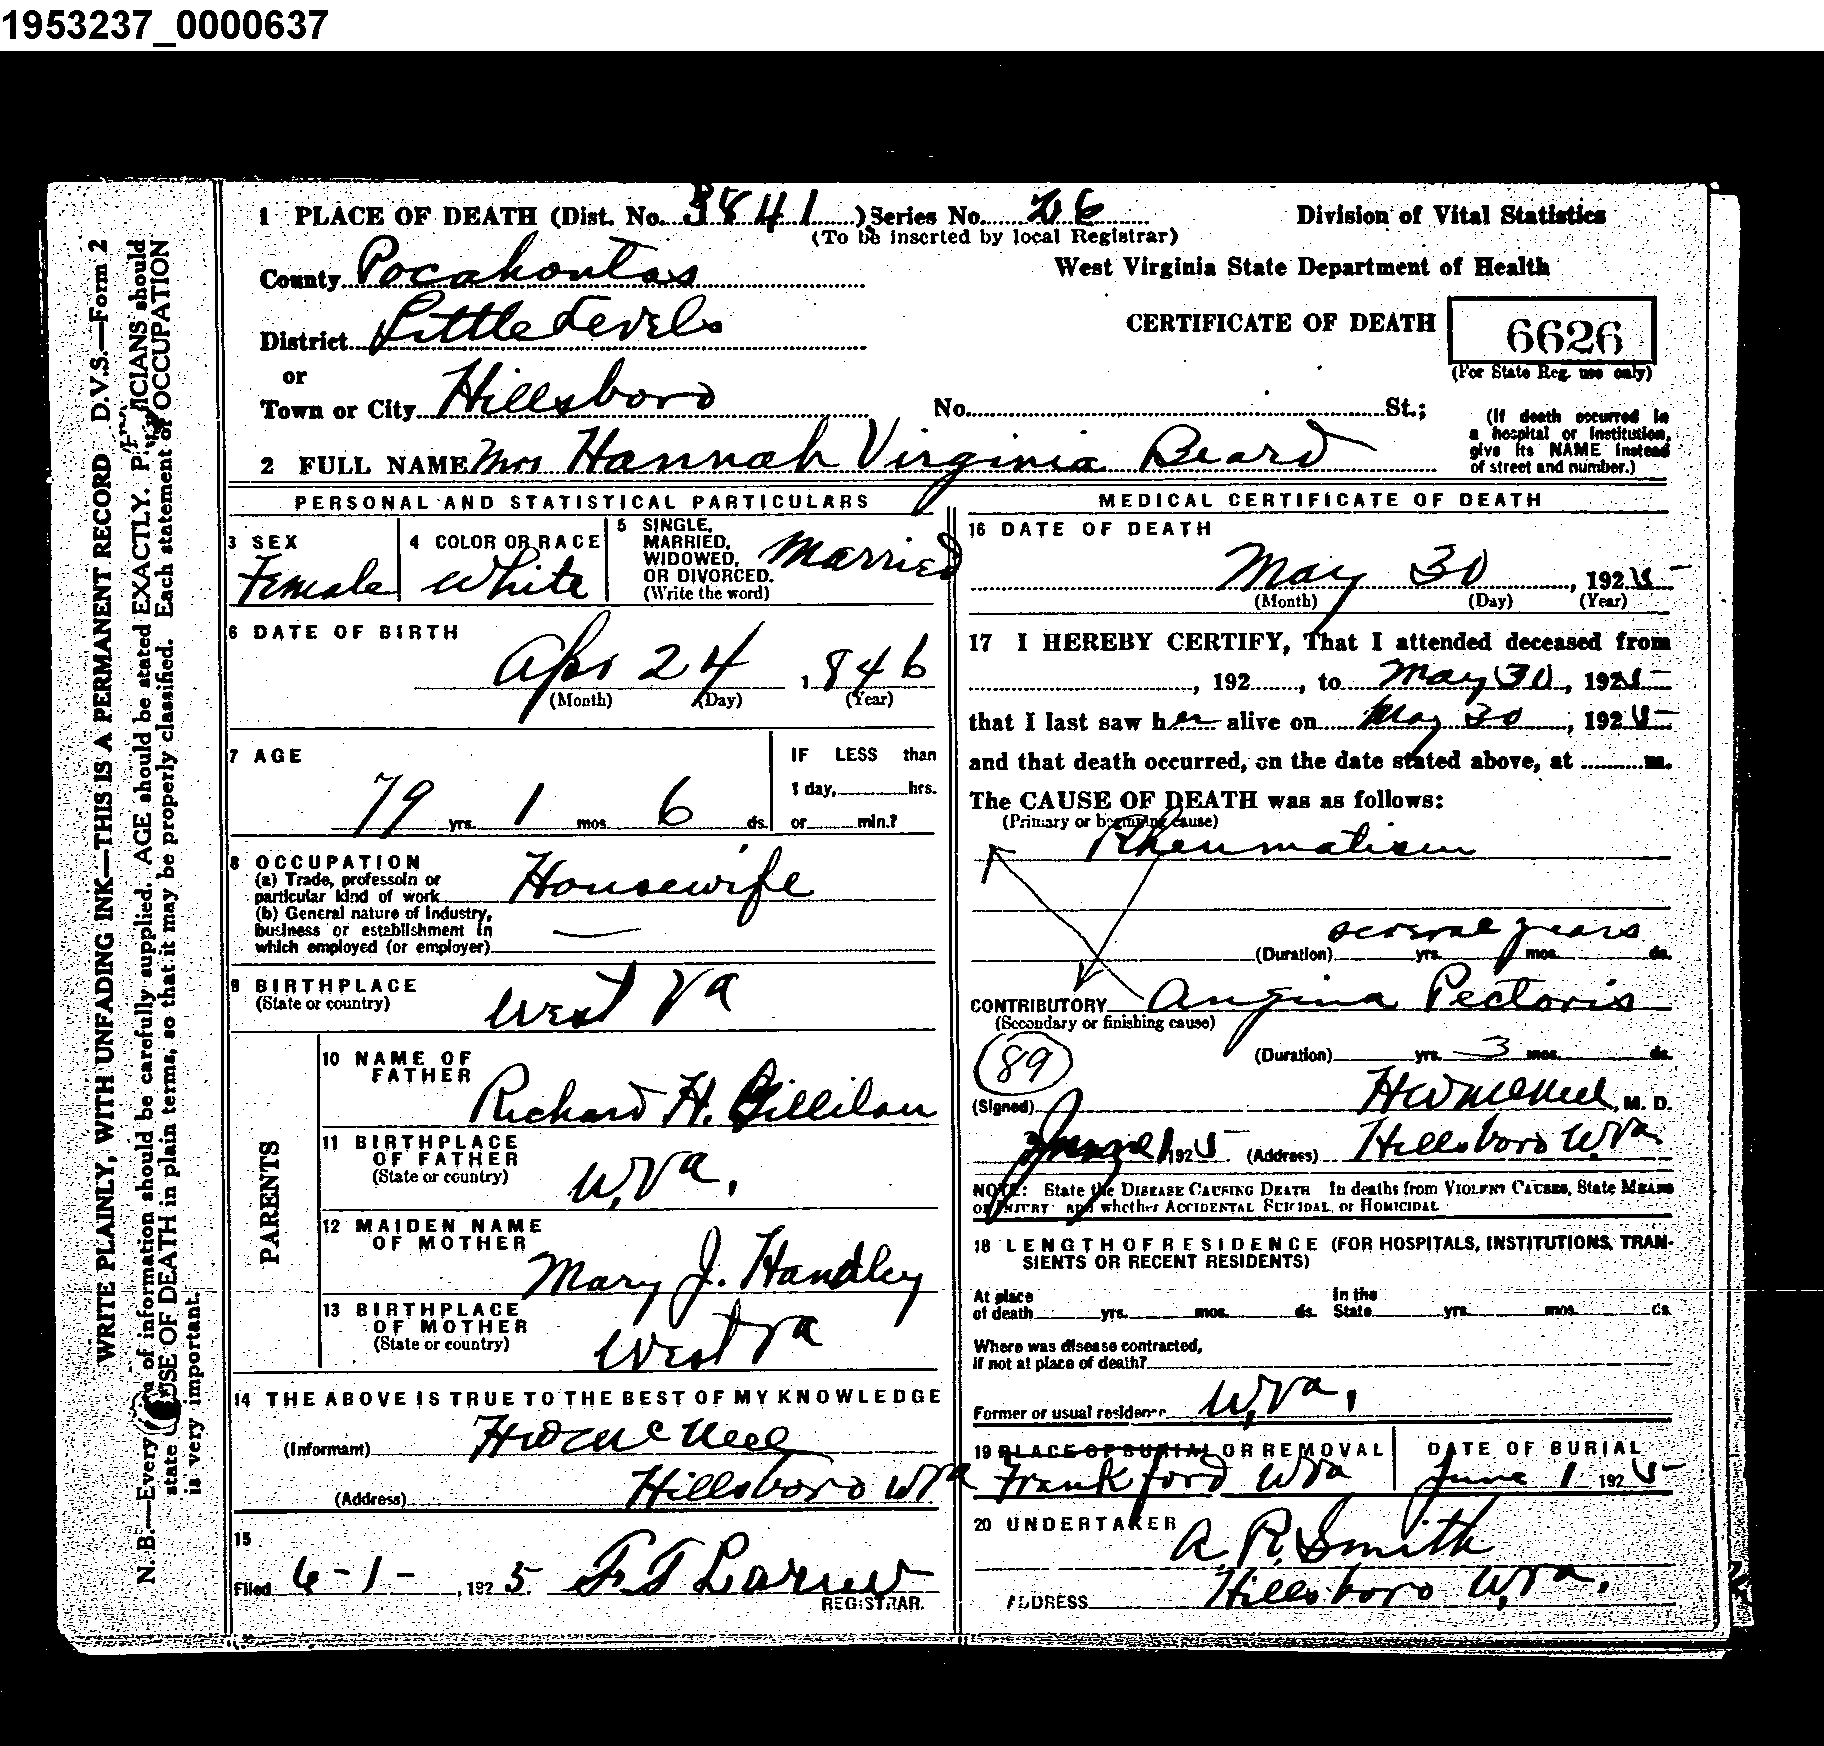 1953237_0000637
WRITE PLAINLY, WITH UNFADING INK—THIS IS A PERMANENT RECORD D.V.S.—Form 2
N. B.—Every of information should be carefully supplied. AGE should be stated EXACTLY. PHYSICIANS should
state CAUSE OF DEATH in plain terms, so that it may be properly classified. Each statement of OCCUPATION
is very important.
1 PLACE OF DEATH (Dist. No. 3841 ) Series No. 26
(To be inserted by local Registrar)
Division of Vital Statistics
County Pocahontas
West Virginia State Department of Health
District Little Levels
CERTIFICATE OF DEATH 6626
(For State Reg. use only)
or
Town or City Hillsboro No. St.;
(If death occurred in
a hospital or institution,
give its NAME instead
of street and number.)
2 FULL NAME Mrs Hannah Virginia Beard
PERSONAL AND STATISTICAL PARTICULARS
3 SEX
Female
4 COLOR OR RACE
White
5 SINGLE,
MARRIED,
WIDOWED,
OR DIVORCED.
(Write the word)
Married
6 DATE OF BIRTH
Apr 24 , 1846
(Month) (Day) (Year)
7 AGE
79 yrs. 1 mos. 6 ds.
IF LESS than
1 day, hrs.
or min.?
8 OCCUPATION
(a) Trade, professoin or
particular kind of work Housewife
(b) General nature of industry,
business or establishment in
which employed (or employer) —
9 BIRTHPLACE
(State or country)
West Va
PARENTS
10 NAME OF
FATHER
Richard H. Gillilan
11 BIRTHPLACE
OF FATHER
(State or country)
W.Va.
12 MAIDEN NAME
OF MOTHER
Mary J. Handley
13 BIRTHPLACE
OF MOTHER
(State or country)
West Va
14 THE ABOVE IS TRUE TO THE BEST OF MY KNOWLEDGE
(Informant) HW McNeel
(Address) Hillsboro WVa
15
Filed 6-1- , 1925. F T Larew
REGISTRAR.
MEDICAL CERTIFICATE OF DEATH
16 DATE OF DEATH
May 30 , 1925
(Month) (Day) (Year)
17 I HEREBY CERTIFY, That I attended deceased from
, 192 , to May 30, 1925
that I last saw her alive on May 30, 1925
and that death occurred, on the date stated above, at m.
The CAUSE OF DEATH was as follows:
(Primary or beginning cause)
Rheumatism
several years
(Duration) yrs. mos. ds.
CONTRIBUTORY Angina Pectoris
(Secondary or finishing cause)
89
(Duration) yrs. 3 mos. ds.
(Signed) HW McNeel, M. D.
June 1 1925. (Address) Hillsboro W.Va.
NOTE: State the DISEASE CAUSING DEATH In deaths from VIOLENT CAUSES, State MEANS
OF INJURY and whether ACCIDENTAL SUICIDAL, or HOMICIDAL
18 LENGTH OF RESIDENCE (FOR HOSPITALS, INSTITUTIONS, TRAN-
SIENTS OR RECENT RESIDENTS)
At place
of death yrs. mos. ds.
In the
State yrs. mos. ds.
Where was disease contracted,
if not at place of death?
Former or usual residence W.Va.
19 PLACE OF BURIAL OR REMOVAL
Frankford WVa
DATE OF BURIAL
June 1 1925
20 UNDERTAKER
A. R. Smith
ADDRESS Hillsboro W.Va.